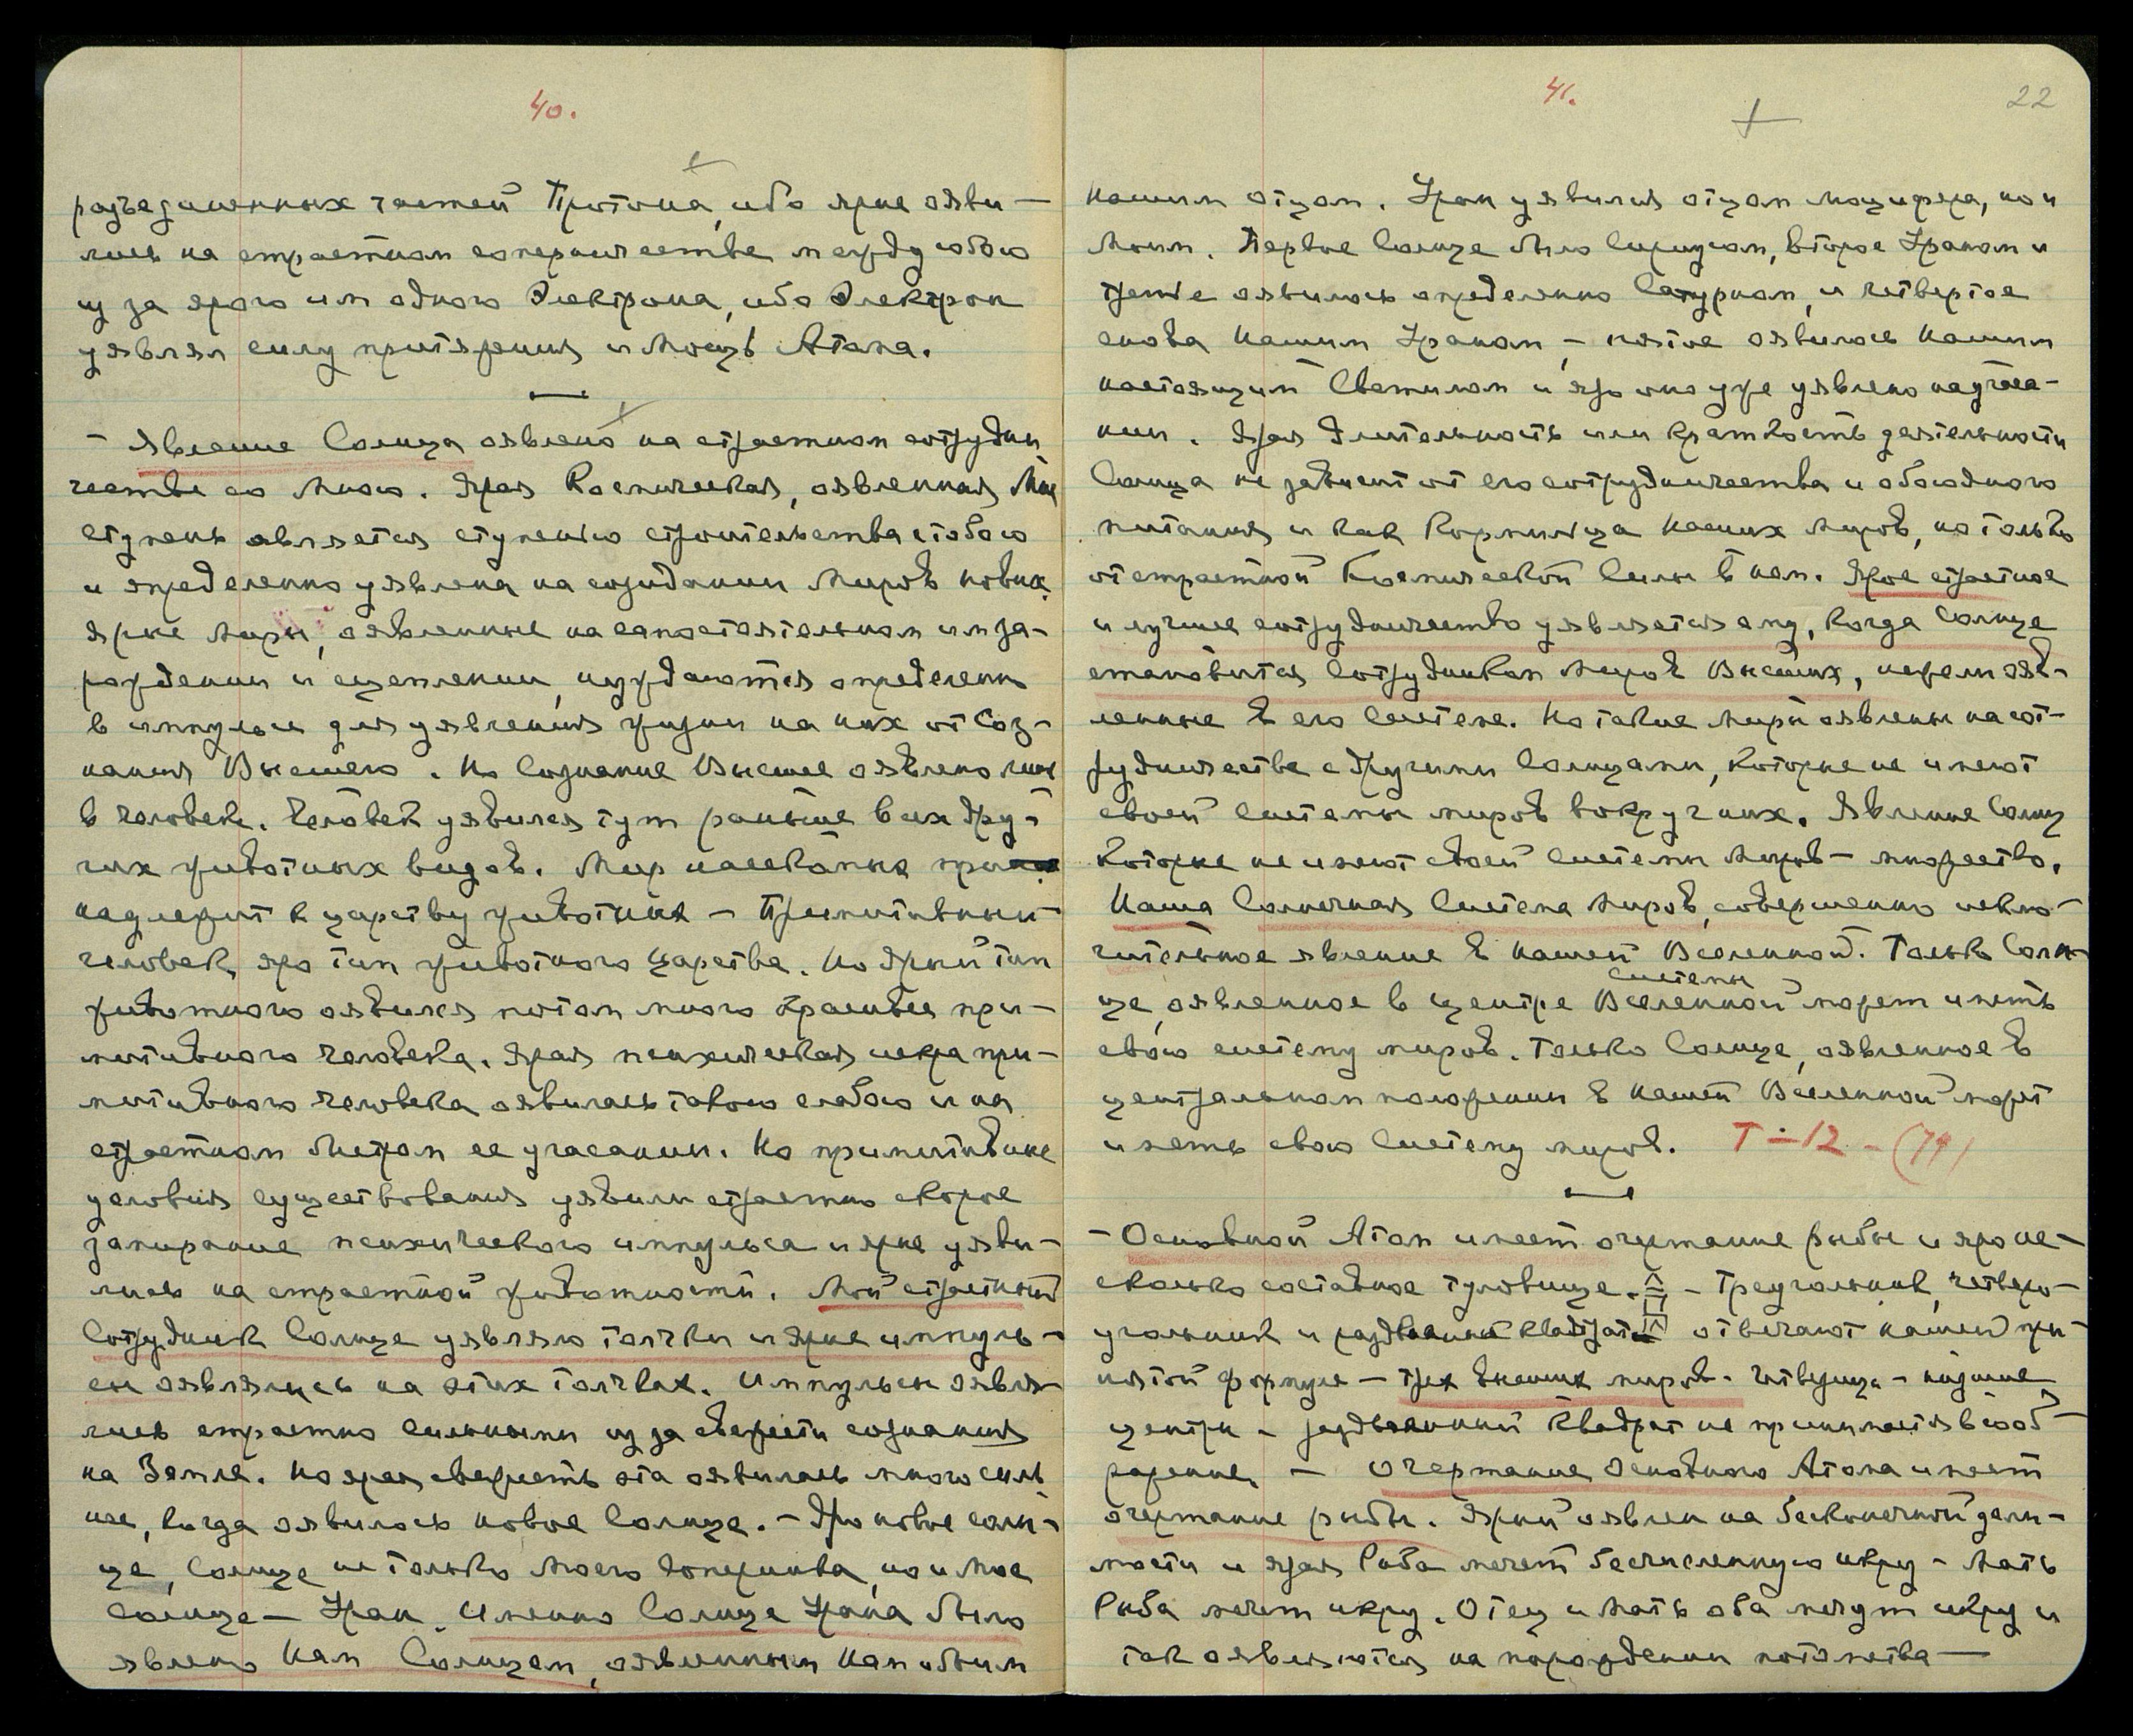 40.
разъединенных частей Протона, ибо ярыеояви-
лись на страстном соперничестве между собою
из за ярого им одного Электрона, ибо Электрон
уявлял силу притяжения и Мощь Атома.
- Явление Солнца оявлено на страстном сотрудни
честве со Мною. Ярая Космическая, оявленная Мне
ступень является ступенью строительства с тобою
и определенно уявлена на созидании Миров новых.
Ярые миры, оявленные на самостоятельном им за-
рождении и сцеплении, нуждаются определенно
в импульсе для уявления жизни на них от Соз-
нания Высшего. Но Сознание Высшее оявлено лишь
в человеке. Человек уявился тут раньше всех дру-
гих животных видов. Мир насекомых при
надлежит к царству животных - Примитивный
человек, яро тип животного царства. Но ярый тип
животного оявился потом много красивее при-
митивного человека. Ярая психическая искра при-
митивного человека оявилась такою слабою и на
страстном Мытом ее угасании. Но примитивные
условия существования уявили страстно скорое
замирание психического импульса и ярые уяви-
лись на страстной животности. Мой страстный
Сотрудник Солнце уявляло толчки и ярые импуль-
сы оявлялись на этих толчках. Импульсы оявля-
лись страстно сильными из за свежести сознания
на Земле. Но ярая свежесть эта оявилась много силь
нее, когда оявилось новое Солнце. - Яро новое солн-
це, Солнце не только Моего Соперника, но и Мое
Солнце - Уран. Именно Солнце Урана было
явлено Нам Солнцем, оявленным Нам обоим
41.
22
нашим отцом. Уран уявился отцом Люцифера, но и
Моим. Первое Солнце было Сириусом, второе Ураном и
третье оявилось определенно Сатурном, и четвертое
снова нашим Ураном, - пятое оявилось нашим
настоящим Светилом и яро оно уже уявлено на угаса-
нии. Ярая длительность или краткость деятельности
Солнца не зависит от его сотрудничества и обоюдного
питания и как Кормильца наших миров, но только
от страстной Космической Силы в нем. Ярое страстное
и лучшее сотрудничество уявляется ему, когда Солнце
становится Сотрудником Миров Высших, нежелиояв-
ленные в его Системе. Но такие миры оявлены на сот-
рудничестве с другими Солнцами, которые не имеют
своей системы миров вокруг них. Явление Солнц
которые не имеют своей системы Миров - множество.
Наша Солнечная Система Миров, совершенно исклю-
чительное явление в нашей Вселенной. Только Солн-
системы
це, оявленное в центре Вселенной может иметь
свою систему миров. Только Солнце, оявленное в
центральном положении в нашей Вселенной может
иметь свою Систему миров. Т-12 - (74)
- Основной Атом имеет очертание рыбы и яро не-
сколько составное туловище. - Треугольник, четверо-
угольник и раздвоенный квадрат отвечают нашей при-
нятой формуле - трех высших миров. четверица - низшие
центры - раздвоенный квадрат не принимается в сооб-
ражение. - Очертание основного Атома имеет
очертание рыбы. Ярый оявлен на бесконечной дели-
мости и ярая Рыба мечет бесчисленную икру - Мать
Рыба мечет икру. Отец и Мать оба мечут икру и
так оявляются на порождении потомства -